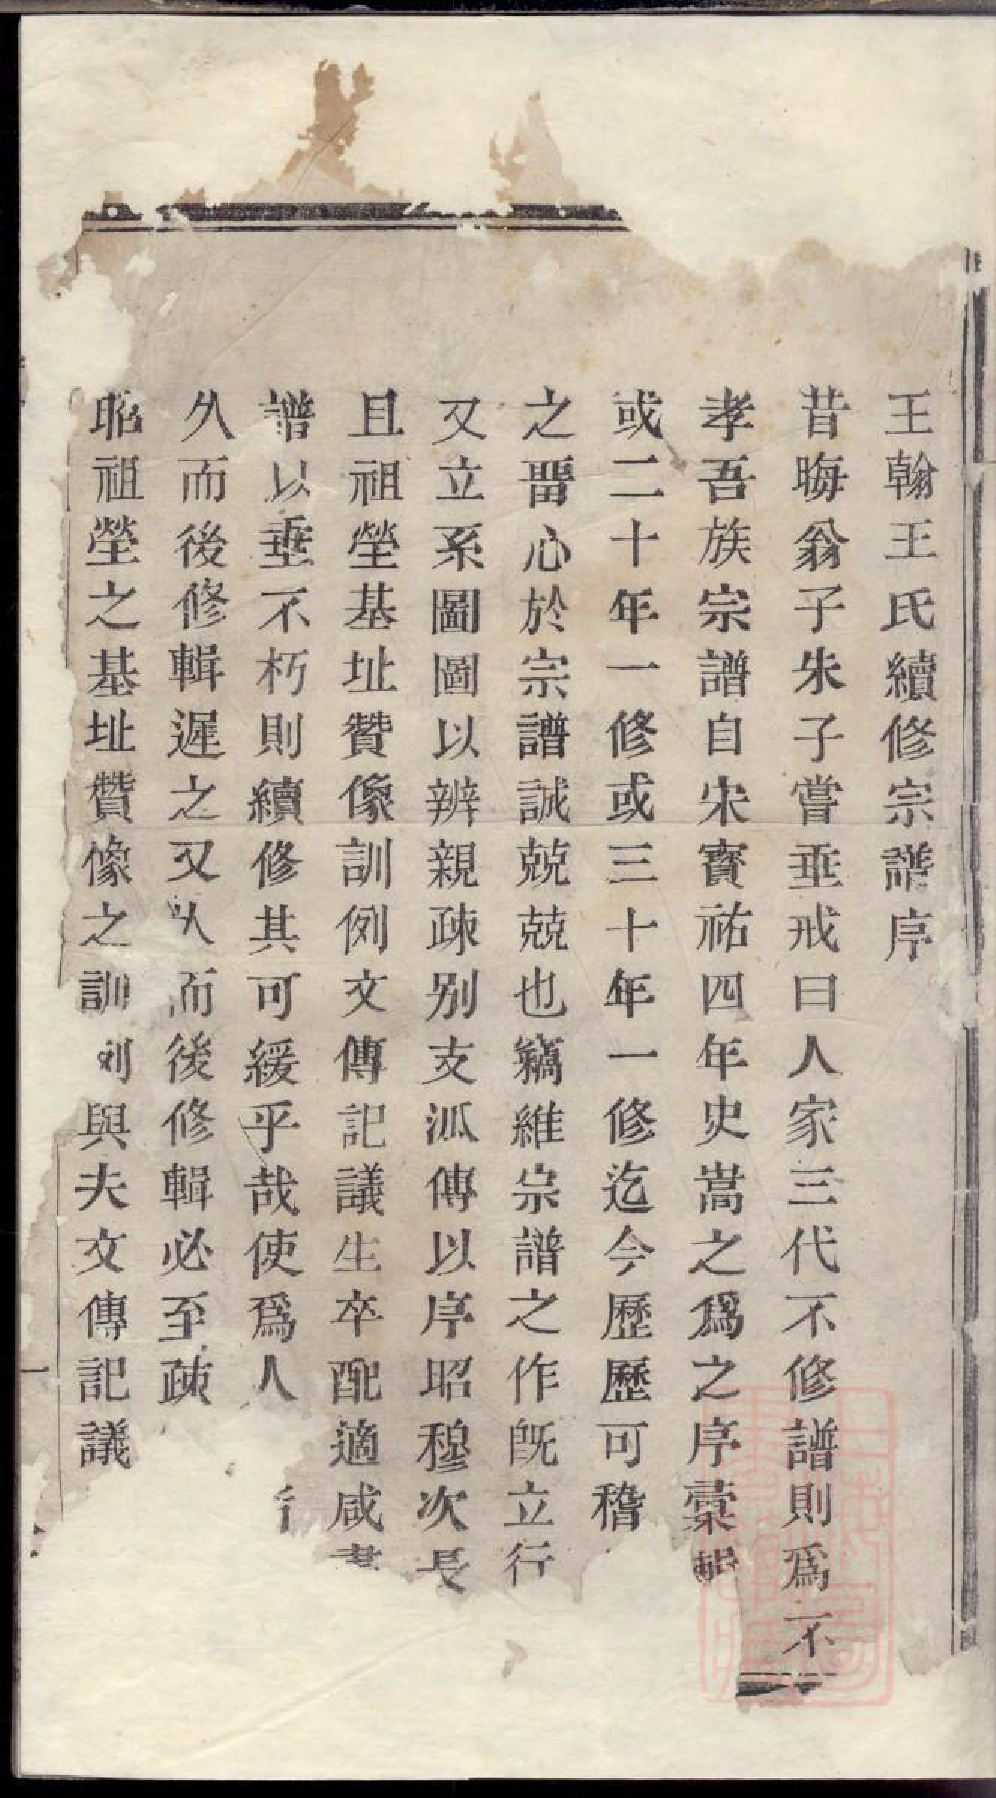 王翰王氏續修宗譜序
昔晦翁子朱子嘗垂戒曰人家三代不修譜則爲不
孝吾族宗譜自宋寳祐四年史嵩之爲之序彙輯
或二十年一修或三十年一修迄今歷歷可稽
之畱心於宗譜誠兢兢也竊維宗譜之作旣立行
又立系圖圖以辨親疎别支派傳以序昭穆次長
且祖塋基址贊像訓例文傳記議生卒配適咸書
譜以垂不朽則續修其可緩乎哉使爲人
久而後修輯遲之又久而後修輯必至疎
昭祖塋之基址贊像之訓例與夫文傳記議